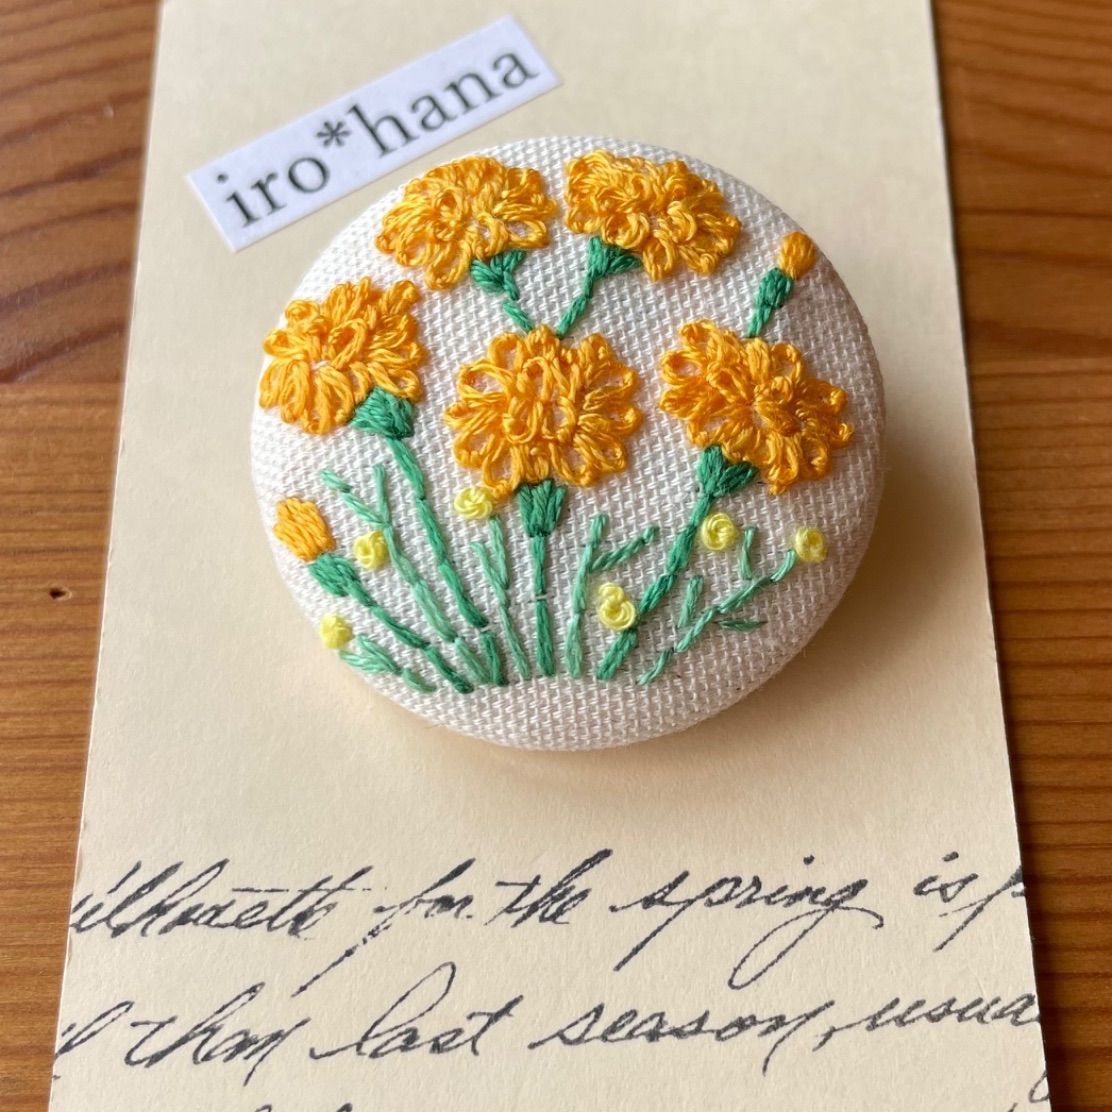 iro*hana
ilhouette for the spring is
than last season, usua